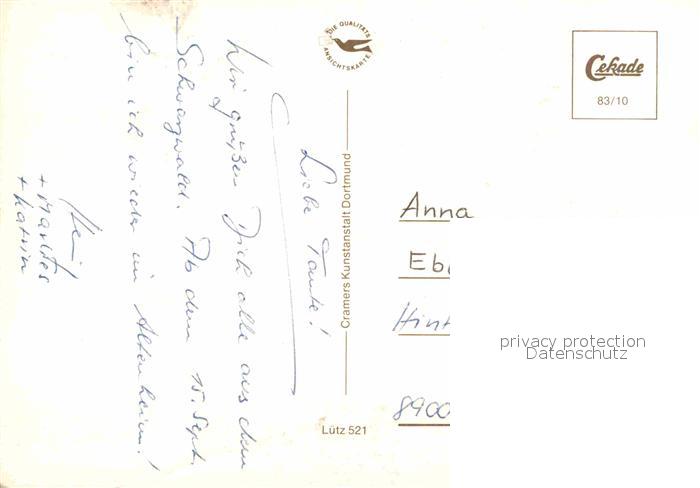 Liebe Tante!
Wir grüßen Dich alle aus dem
Schwarzwald. Ab dem 15. Sept.
bin ich wieder im Altenheim!
+ Marlies
+ Katrin
DIE QUALITÄTS
ANSICHTSKARTE
Cramers Kunstanstalt Dortmund
Lütz 521
Cekade
83/10
Anna
Eb
Hint
8900
privacy protection
Datenschutz